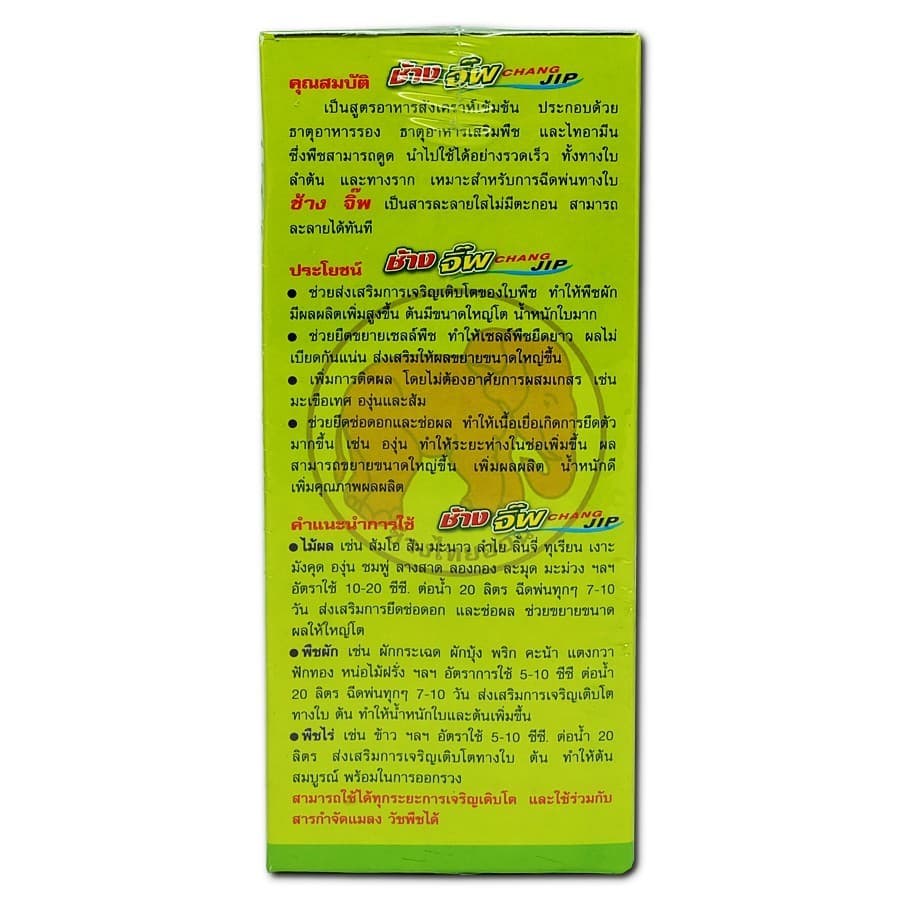 คุณสมบัติ ช้าง จิ๊พ CHANG JIP
เป็นสูตรอาหารสังเคราะห์เข้มข้น ประกอบด้วย
ธาตุอาหารรอง ธาตุอาหารเสริมพืช และไทอามีน
ซึ่งพืชสามารถดูด นำไปใช้ได้อย่างรวดเร็ว ทั้งทางใบ
ลำต้น และทางราก เหมาะสำหรับการฉีดพ่นทางใบ
ช้าง จิ๊พ เป็นสารละลายใสไม่มีตะกอน สามารถ
ละลายได้ทันที
ประโยชน์ ช้าง จิ๊พ CHANG JIP
● ช่วยส่งเสริมการเจริญเติบโตของใบพืช ทำให้พืชผัก
มีผลผลิตเพิ่มสูงขึ้น ต้นมีขนาดใหญ่โต น้ำหนักใบมาก
● ช่วยยืดขยายเซลล์พืช ทำให้เซลล์พืชยืดยาว ผลไม่
เบียดกันแน่น ส่งเสริมให้ผลขยายขนาดใหญ่ขึ้น
● เพิ่มการติดผล โดยไม่ต้องอาศัยการผสมเกสร เช่น
มะเขือเทศ องุ่นและส้ม
● ช่วยยืดช่อดอกและช่อผล ทำให้เนื้อเยื่อเกิดการยืดตัว
มากขึ้น เช่น องุ่น ทำให้ระยะห่างในช่อเพิ่มขึ้น ผล
สามารถขยายขนาดใหญ่ขึ้น เพิ่มผลผลิต น้ำหนักดี
เพิ่มคุณภาพผลผลิต
คำแนะนำการใช้ ช้าง จิ๊พ CHANG JIP
● ไม้ผล เช่น ส้มโอ ส้ม มะนาว ลำไย ลิ้นจี่ ทุเรียน เงาะ
มังคุด องุ่น ชมพู่ ลางสาด ลองกอง ละมุด มะม่วง ฯลฯ
อัตราใช้ 10-20 ซีซี. ต่อน้ำ 20 ลิตร ฉีดพ่นทุกๆ 7-10
วัน ส่งเสริมการยืดช่อดอก และช่อผล ช่วยขยายขนาด
ผลให้ใหญ่โต
● พืชผัก เช่น ผักกระเฉด ผักบุ้ง พริก คะน้า แตงกวา
ฟักทอง หน่อไม้ฝรั่ง ฯลฯ อัตราการใช้ 5-10 ซีซี ต่อน้ำ
20 ลิตร ฉีดพ่นทุกๆ 7-10 วัน ส่งเสริมการเจริญเติบโต
ทางใบ ต้น ทำให้น้ำหนักใบและต้นเพิ่มขึ้น
● พืชไร่ เช่น ข้าว ฯลฯ อัตราใช้ 5-10 ซีซี. ต่อน้ำ 20
ลิตร ส่งเสริมการเจริญเติบโตทางใบ ต้น ทำให้ต้น
สมบูรณ์ พร้อมในการออกรวง
สามารถใช้ได้ทุกระยะการเจริญเติบโต และใช้ร่วมกับ
สารกำจัดแมลง วัชพืชได้